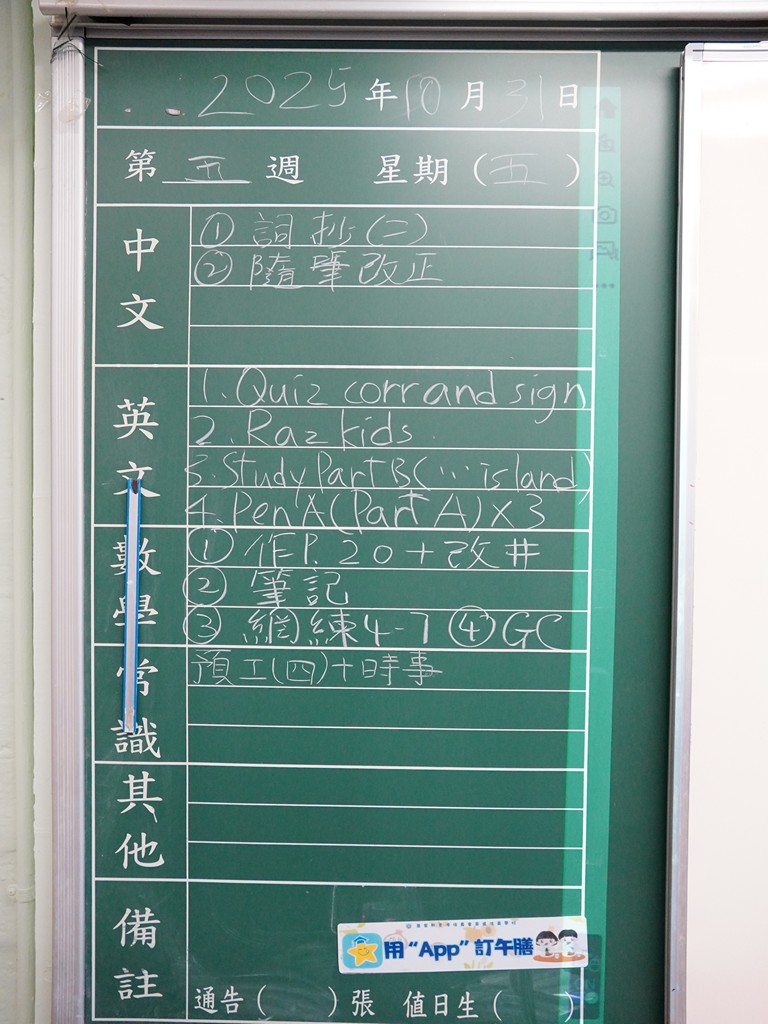 2025年10月31日
第五週 星期(五)
中文
① 詞抄(二)
② 隨筆改正
英文
1. Quiz corr and sign
2. Raz kids
3. Study Part B(...island)
4. Pen A(Part A) x 3
數學
① 作P. 20+改井
② 筆記
③ 網練4-7 ④ GC
常識
預工(四)+時事
其他
備註
用“App”訂午膳
通告( )張 值日生( )